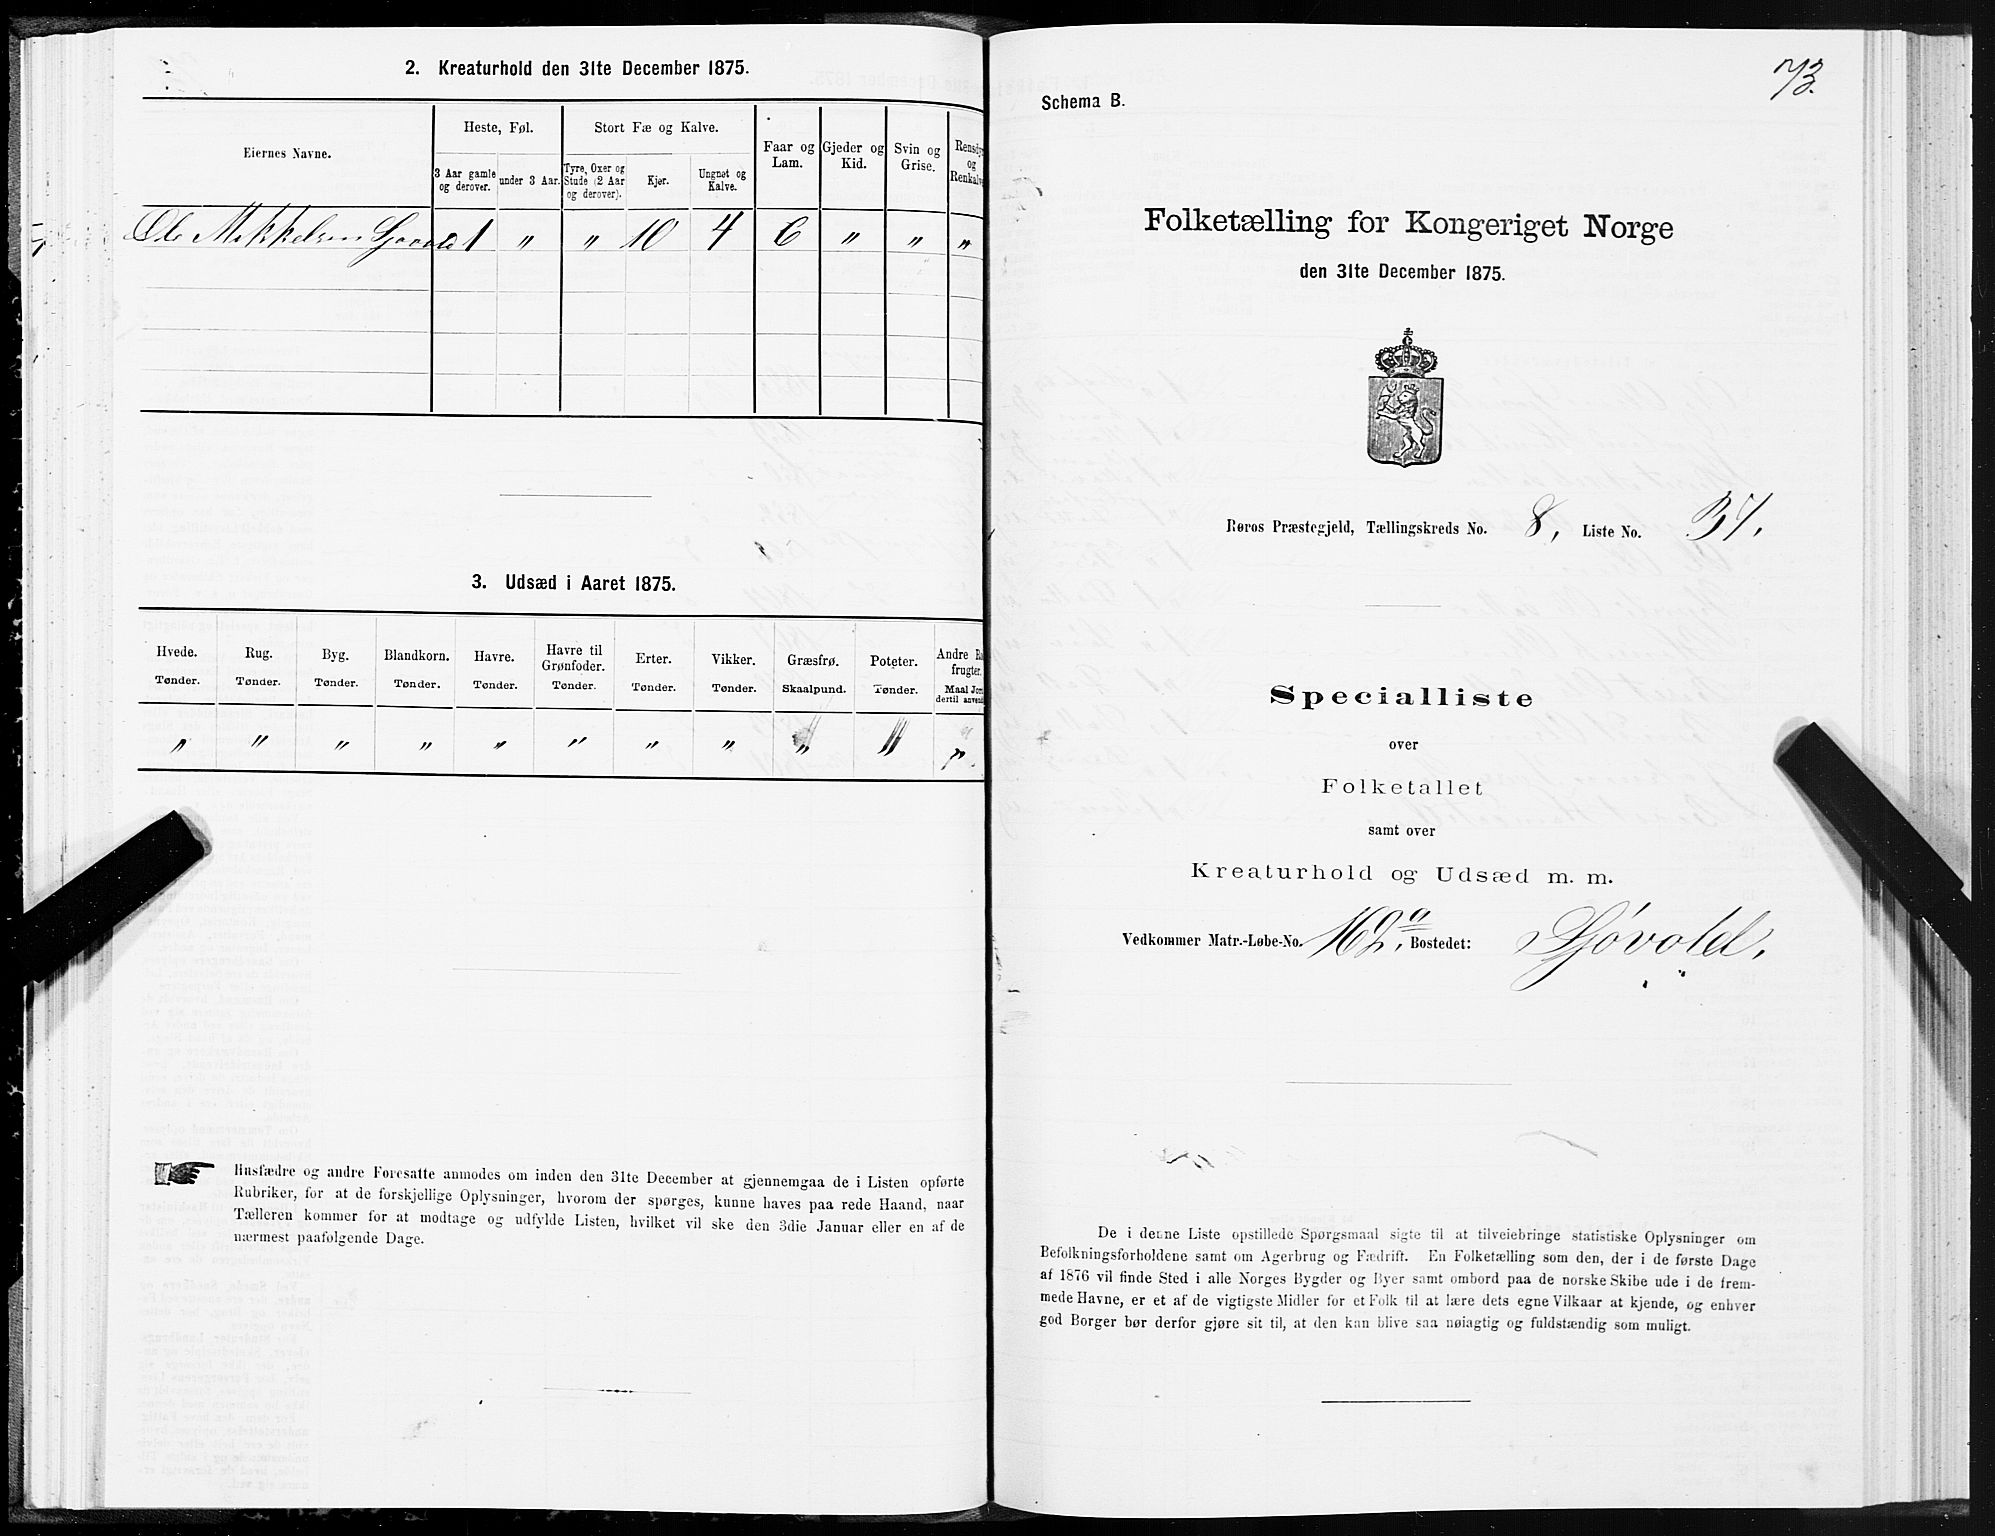 2. Kreaturhold den 31te December 1875.
Eiernes Navne.
Heste, Føl.
Stort Fæ og Kalve.
Faar og Lam.
Gjeder og Kid.
Svin og Grise.
og
3 Aar gamle og derover.
under 3 Aar.
Tyre, Oxer og Stude (2 Aar og derover).
Kjør.
Ungnøt og Kalve.
Ole Mikkelsen 1 " " 10 4 6 " " "
3. Udsæd i Aaret 1875.
Hvede. Rug. Byg. Blandkorn. Havre. Havre til Grønfoder. Erter. Vikker. Græsfrø. Poteter. Andre
frugter.
Tønder. Tønder. Tønder. Tønder. Tønder. Tønder. Tønder. Tønder. Skaalpund. Tønder. Maal
dertil
" " " " " " " " " "
Husfædre og andre Foresatte anmodes om inden den 31te December at gjennemgaa de i Listen opførte
Rubriker, for at de forskjellige Oplysninger, hvorom der spørges, kunne haves paa rede Haand, naar
Tælleren kommer for at modtage og udfylde Listen, hvilket vil ske den 3die Januar eller en af de
nærmest paafølgende Dage.
73.
Schema B.
Folketælling for Kongeriget Norge
den 31te December 1875.
Røros Præstegjeld, Tællingskreds No. 8, Liste No. 37.
Specialliste
over
Folketallet
samt over
Kreaturhold og Udsæd m. m.
Vedkommer Matr.-Løbe-No. 162.a Bostedet: Sjøvold.
De i denne Liste opstillede Spørgsmaal sigte til at tilveiebringe statistiske Oplysninger om
Befolkningsforholdene samt om Agerbrug og Fædrift. En Folketælling som den, der i de første Dage
af 1876 vil finde Sted i alle Norges Bygder og Byer samt ombord paa de norske Skibe ude i de frem-
mede Havne, er et af de vigtigste Midler for et Folk til at lære dets egne Vilkaar at kjende, og enhver
god Borger bør derfor gjøre sit til, at den kan blive saa nøiagtig og fuldstændig som muligt.